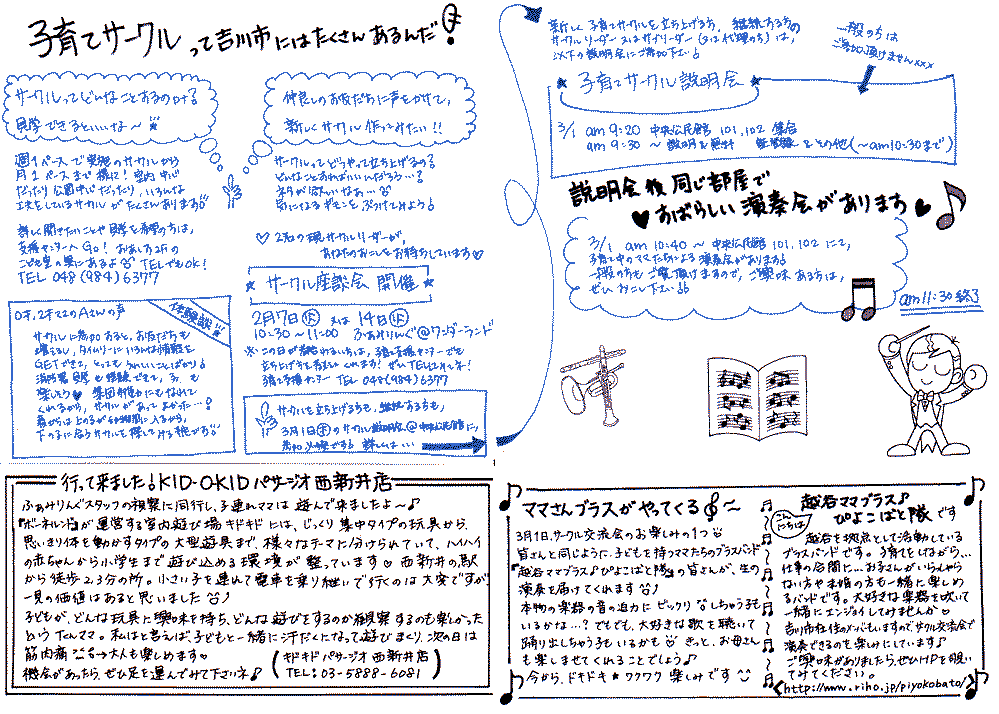 子育てサークルって吉川市にはたくさんあるんだ!
サークルってどんなことするのかな?
見学できるといいな〜
仲良しのお友だちに声をかけて、
新しくサークル作ってみたい!!
週1ペースで実施のサークルから
月1ペースまで様々! 室内中心
だったり公園中心だったり、いろんな
工夫をしているサークルがたくさんあります
詳しく聞きたいことや見学を希望の方は、
支援センターへGO!
TELでもOK!
TEL 048(984)6377
サークルってどうやって立ち上げるの?
どんなことすればいいんだろう…?
ネタが欲しいなあ…
気になるギモンをぶつけてみよう!
♡2名の現サークルリーダーが、
あなたのおこしをお待ちしています♡
★サークル座談会 開催★
2月7日㊋ 又は 14日㊋
10:30〜11:00 ふぁみりんぐ@ワンダーランド
※この日が
子育て支援センター TEL 048(984)6377
体験談
0才、2才ママのAさんの声
サークルに参加すると、お友だちも
増えるし、タイムリーにいろんな情報を
GETできて、とってもうれしいことばかり!
消防署見学も体験できて、
楽しそう♡
サークルを立ち上げる方も、継続する方も、
3月1日㊍のサークル説明会@中央公民館に、
参加必須です! 詳しくは…
新しく子育てサークルを立ち上げる方、継続する方の
サークルリーダー又はサブリーダー(又は代理の方)は、
以下の説明会にご参加下さい!
一般の方は
ご参加頂けませんxxx
★子育てサークル説明会★
3/1 am 9:20 中央公民館 101,102 集合
am 9:30 〜 説明 その他(〜am10:30まで)
説明会後 同じ部屋で
♥すばらしい演奏会があります♥
3/1 am 10:40 〜 中央公民館 101,102 にて、
子育て中のママたちによる演奏会があります!
一般の方もご覧頂けますので、ご興味ある方は、
ぜひおこし下さい!!
am11:30 終了
行って来ました! KID-O-KID パサージオ 西新井店
ふぁみりんぐスタッフの視察に同行し、子連れママは遊んで来ましたよ〜♪
『ボーネルンド』が運営する室内遊び場キドキドには、じっくり集中タイプの玩具から、
思いきり体を動かすタイプの大型遊具まで、様々なテーマに分けられていて、ハイハイ
の赤ちゃんから小学生まで遊び込める環境が整っています♡ 西新井の駅
から徒歩2,3分の所。小さい子を連れて電車を乗り継いで行くのは大変ですが
一見の価値はあると思いました
子どもが、どんな玩具に興味を持ち、どんな遊びをするのか観察するのも楽しかった
というTさんママ。私はと言えば、子どもと一緒に汗だくになって遊びまくり、次の日は
筋肉痛 →大人も楽しめます。
機会があったら、ぜひ足を運んでみて下さいネ♪
(キドキドパサージオ 西新井店
TEL:03-5888-6081)
ママさんブラスがやってくる 〜
3月1日、サークル交流会のお楽しみの1つ
皆さんと同じように、子どもを持つママたちのブラスバンド
『越谷ママブラス♪ぴよこばと隊』の皆さんが、生の
演奏を届けてくれます♪
本物の楽器の音の迫力にビックリしちゃう子も
いるかな…? でもでも、大好きな歌を聴いて
踊り出しちゃう子もいるかも♡ きっと、お母さん
も楽しませてくれることでしょう♪
今から、ドキドキ★ワクワク楽しみです
こんにちは
越谷ママブラス♪
ぴよこばと隊です
越谷を拠点として活動している
ブラスバンドです。子育てをしながら…
仕事の合間に…お子さんがいらっしゃら
ない方や未婚の方も一緒に楽しめ
るバンドです。大好きな楽器を吹いて
一緒にエンジョイしてみませんか♡
吉川市在住のメンバーもいますのでサークル交流会で
演奏できるのを楽しみにしています♪
ご興味がありましたらぜひHPを覗い
てみてください。
<http://www.riho.jp/piyokobato/>